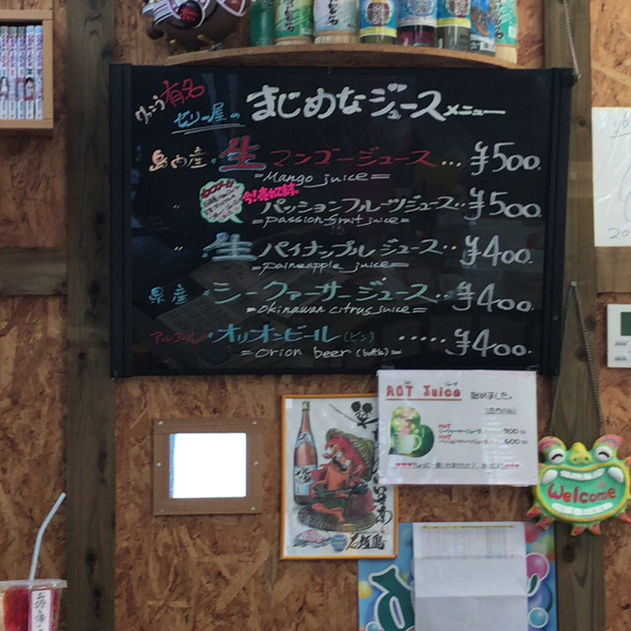 けっこう有名
ゼリー屋の まじめなジュースメニュー
島内産・生マンゴージュース… ¥500.
=Mango juice=
〃 今!売れてます。 パッションフルーツジュース‥ ¥500.
=passion fruit juice=
〃 ・生パイナップルジュース‥ ¥400.
=paineapple juice=
県産・シークァーサージュース‥ ¥400.
=okinawan citrus juice=
アルコール・オリオンビール(ビン) ‥‥‥ ¥400.
=orion beer (bottle)=
HOT Juice 始めました。
HOT
HOT
石垣島
Welcome